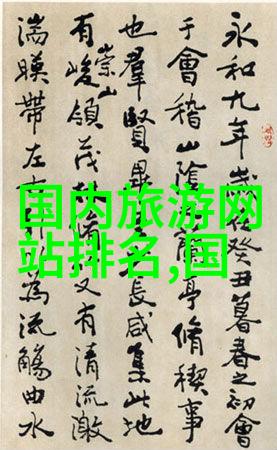 国内旅游网
站排名,国
永和九年歲在癸丑暮春之初會
于會稽山陰蘭亭脩稧事
也羣賢畢長咸集此地
有崇山峻領茂又有清流激
湍暎帶左右為流觴曲水